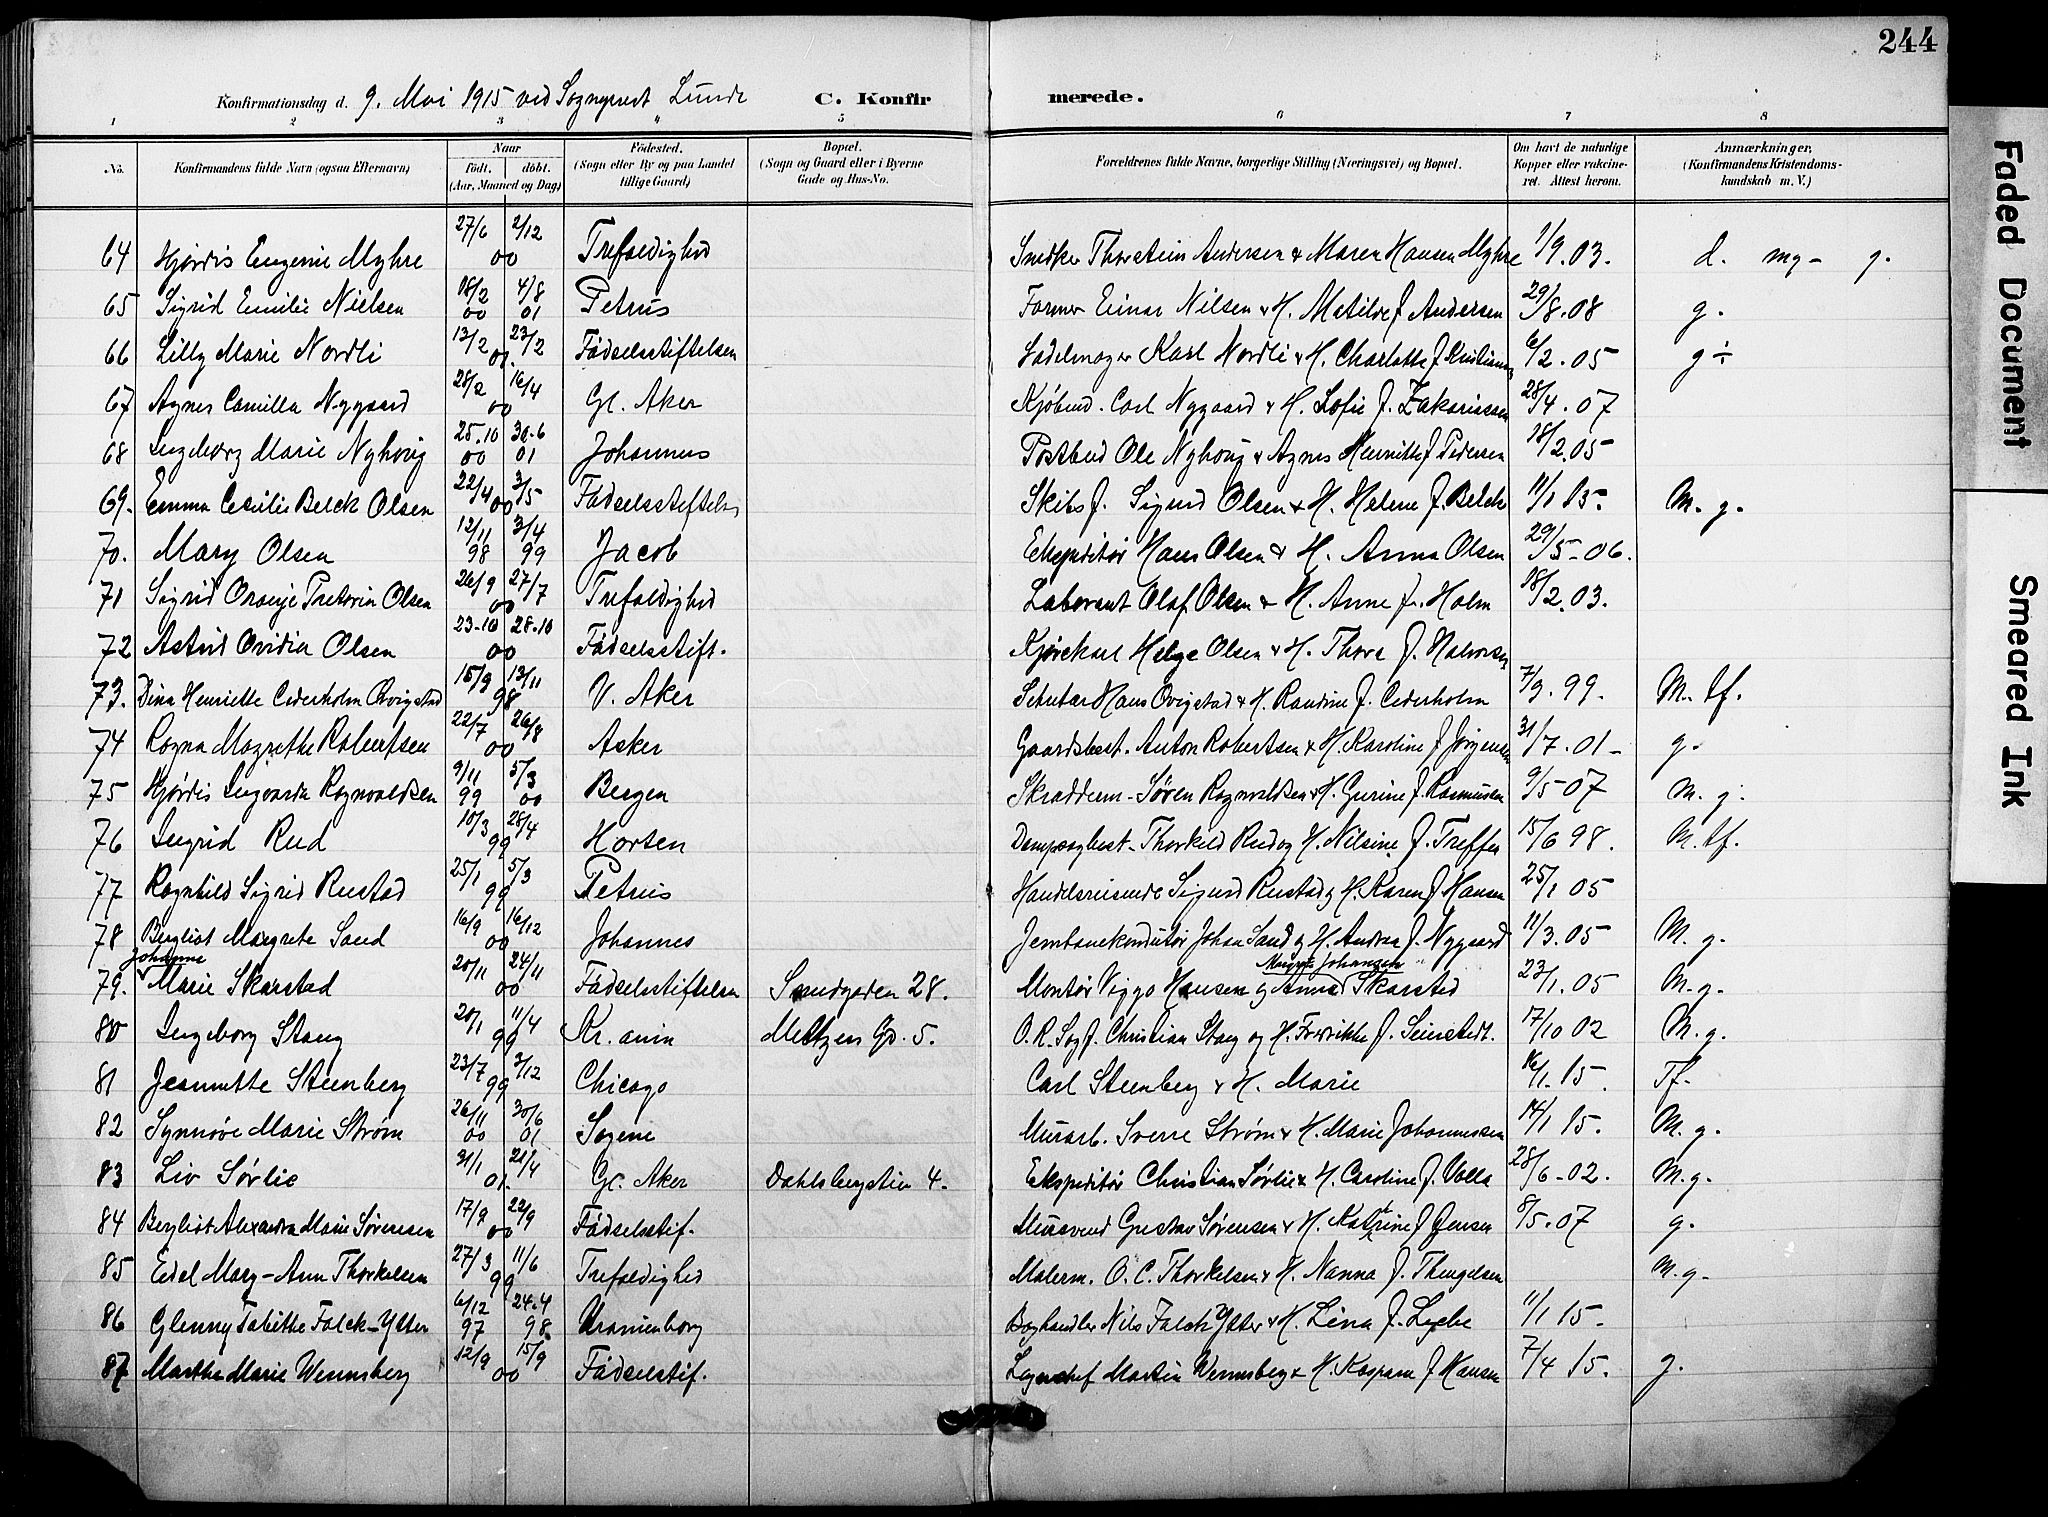 244
Konfirmationsdag d. 9. Mai 1915 ved Sogneprest Lunde C. Konfirmerede.
1 2 3 4 5 6 7 8
No. Konfirmandens fulde Navn (ogsaa Efternavn) Naar født. døbt. (Aar, Maaned og Dag) Fødested. (Sogn eller By og paa Landet tillige Gaard) Bopæl. (Sogn og Gaard eller i Byerne Gade og Hus-No. Forældrenes fulde Navne, borgerlige Stilling (Næringsvei) og Bopæl. Om havt de naturlige Kopper eller vakcineret. Attest herom. Anmærkninger, (Konfirmandens Kristendomskundskab m. V.)
64 Hjørdis Eugenie Myhre 27/6 2/12 00 Trefoldighed Snedker Thorstein Andersen & Maren Hansen Myhre 1/9.03. d. mg- g.
65 Sigrid Emilie Nielsen 18/2 00 4/8 01 Petrus Former Einar Nilsen & H. Matilde f. Andersen 29/8.08 g.
66 Lilly Marie Nordli 13/2 23/2 01. Fødselsstiftelsen Sadelmager Karl Nordli & H. Charlotte f. 6/2.05 g ÷
67 Agnes Camilla Nygaard 28/2 16/4 00 Gl. Aker Kjøbmd. Carl Nygaard & H. Sofie f. Zakariassen 28/4.07
68 Ingeborg Marie Nyhoug 25.10 00 30.6 01 Johannes Postbud Ole Nyhoug & Agnes Henritte f. Pedersen 18/2.05
69. Emma Cecilie Belck Olsen 22/4 3/5 00 Fødselsstiftels Skibsf. Sigurd Olsen & H. Helene f. Belck 11/1 15. M. g.
70. Mary Olsen 12/11 98 3/4 99 Jacob Ekspeditør Hans Olsen & H. Anna Olsen 29/5-06.
71 Sigrid Oranje Pretoria Olsen 26/9 27/7 00 Trefoldighed Laborant Olaf Olsen & H. Anne f. Holm 18/2.03.
72 Astrid Ovidia Olsen 23-10 28.10 00 Fødselsstift. Kjørekarl Helge Olsen & H. Thora f. Halvorsen
73. Dina Henriette Cederholm Qvigstad 15/9 13/11 98 V. Aker Hans Qvigstad & H. Randine f. Cederholm 7/9.99. M. tf.
74 Ragna Margrethe Robertsen 22/7 26/8 00 Asker Gaardsbest. Anton Robertsen & H. Karoline f. Jørgensen 31/7.01- g.
75 Hjørdis Ingvarda Ragnvaldsen 9/11 99 5/3 00 Bergen Skrædderm- Søren Ragnvaldsen & H. Gurine f. Rasmussen 9/5-07 M. g.
76 Ingrid Rud 10/3 28/4 99 Horten Dampsagbest- Thorkild Rud og H. Nilsine f. Treffen 15/6 98. M. tf.
77 Ragnhild Sigrid Rustad 25/1 5/3 99 Petrus Handelsreisende Sigurd Rustad & H. Karen f. Hansen 25/1 05
78 Bergliot Margrete Sand 16/9 16/12 00 Johannes Jernbanekonduktør Johan Sand & H. Andrea f. Nygaard 11/3.05 M. g.
79. Johanne Marie Skarstad 20/11 24/11 00 Fødselsstiftelsen Smedgaden 28. Montør Viggo Hansen & Anna Johansen Skarstad 23/1.05 M. g.
80 Ingeborg Stang 20/1 11/4 99 Kr. ania Meltzers Gd. 5. O.R. Sagf. Christian Stang og H. Fredrikke f. 17/10 02 M. g.
81 Jeannette Steenberg 23/7 3/12 99 Chicago Carl Steenberg & H. Marie 16/1.15. Tf.
82 Synnøve Marie Strøm 26/11 00 30/6 01 Sagene Murarb. Sverre Strøm & H. Marie Johannessen 14/1 15. M. g.
83 Liv Sørlie 31/1 21/4 01. Gl. Aker Dahlsbergstien 4. Ekspeditør Christian Sørlie & H. Caroline f. Volla 28/6-02. M. g.
84 Bergliot Alexandra Marie Sørensen 17/9 22/9 00 Fødselsstif. Mursvend Gustav Sørensen & H. Katrine f. Jensen 8/5.07 g.
85 Edel Mary-Ann Thorkelsen 27/3 11/6 99 Trefoldighed Malerm. O.C. Thorkelsen & H. Nanna f. Thengelsen M. g-
86 Glenny Tabitha Falck-Ytter 6/12 97 24.4 98 Uranienborg Boghandler Nils Falck Ytter & H. Lina f. 11/1 15.
87 Marthe Marie Wennsberg 12/9 15/9 00 Fødselsstif. Lagerchef Martin Wennsberg & H. Kaspara f. Hansen 7/4 15. g.
Faded Document
Smeared Ink